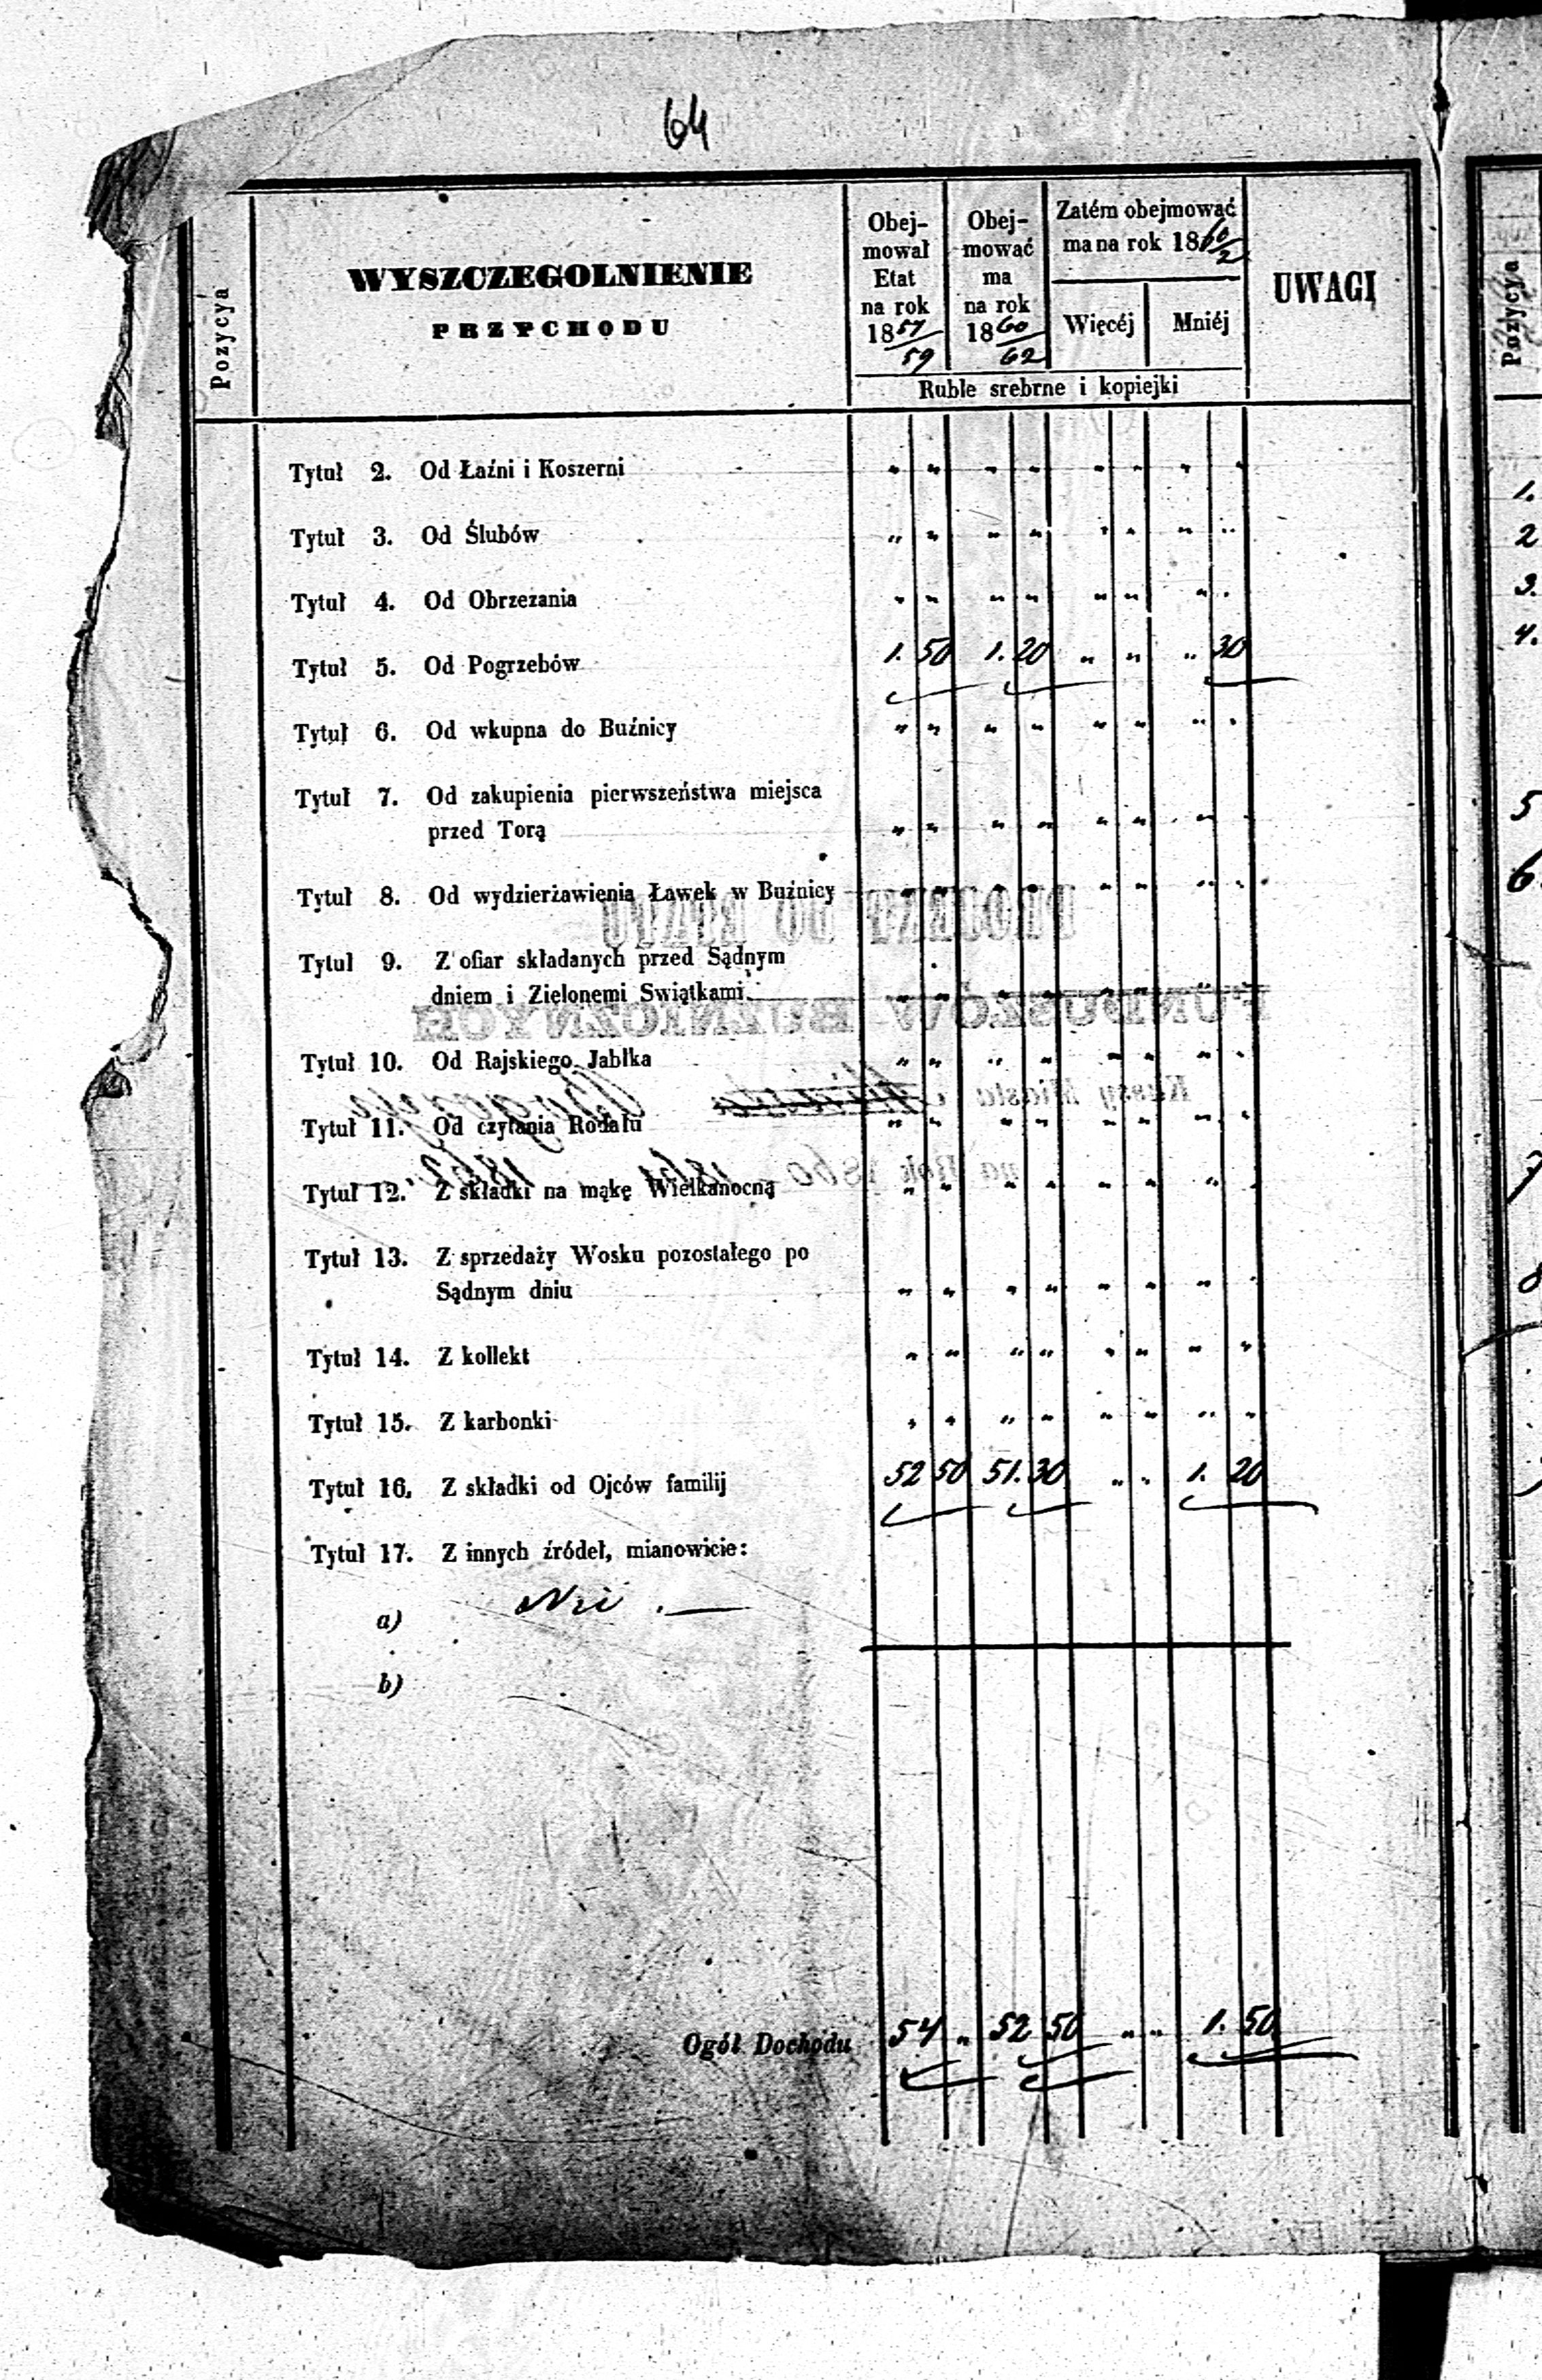 64
Pozycya
WYSZCZEGOLNIENIE
PRZYCHODU
Obej-
mował
Etat
na rok
1857/59
Obej-
mować
ma
na rok
1860/62
Zatém obejmować
ma na rok 1860/2
Więcéj
Mniéj
Ruble srebrne i kopiejki
UWAGI
Tytuł 2. Od Łaźni i Koszerni " " " " " " " "
Tytuł 3. Od Ślubów " " " " " " " "
Tytuł 4. Od Obrzezania " " " " " " " "
Tytuł 5. Od Pogrzebów 1. 50 1. 20 " " " 30
Tytuł 6. Od wkupna do Buźnicy " " " " " " " "
Tytuł 7. Od zakupienia pierwszeństwa miejsca
przed Torą " " " " " " " "
Tytuł 8. Od wydzierżawienia Ławek w Buźnicy " " " " " " " "
Tytuł 9. Z ofiar składanych przed Sądnym
dniem i Zielonemi Swiątkami " " " " " " " "
Tytuł 10. Od Rajskiego Jabłka " " " " " " " "
Tytuł 11. Od czytania Rodału " " " " " " " "
Tytuł 12. Z składki na mąkę Wielkanocną " " " " " " " "
Tytuł 13. Z sprzedaży Wosku pozostałego po
Sądnym dniu " " " " " " " "
Tytuł 14. Z kollekt " " " " " " " "
Tytuł 15. Z karbonki " " " " " " " "
Tytuł 16. Z składki od Ojców familij 52 50 51. 30 " " 1. 20
Tytuł 17. Z innych źródeł, mianowicie:
a)
b)
Ogół Dochodu 54 " 52 50 " " 1. 50
Pozycya
1.
2
3.
4.
5
6.
7
8